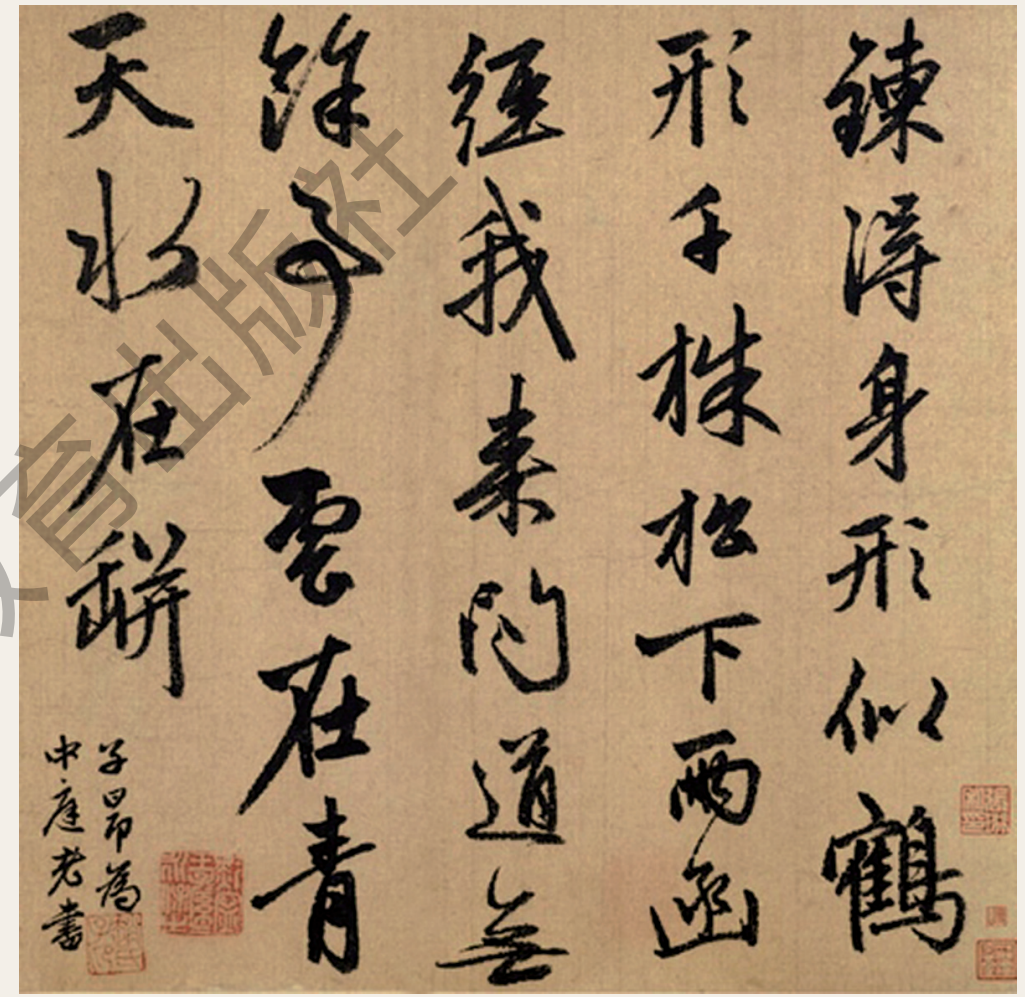 鍊得身形似鶴
形千株松下兩函
經我來問道無
餘事雲在青
天水在缾
子昂為
中庭老書
育出版社